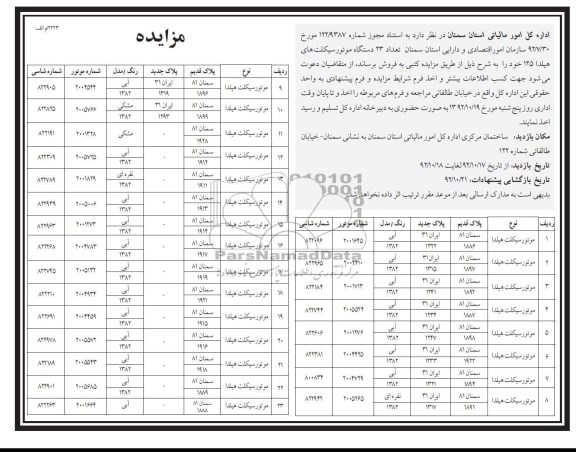 ۲۲۲۳/م الف
مزایده
اداره کل امور مالیاتی استان سمنان در نظر دارد به استناد مجوز شماره ۱۲۲/۹۳۸۷ مورخ
۹۲/۷/۳۰ سازمان اموراقتصادی و دارایی استان سمنان تعداد ۲۳ دستگاه موتورسیکلت های
هیلدا ۱۲۵ خود را به شرح ذیل از طریق مزایده کتبی به فروش برساند، از متقاضیان دعوت
می شود جهت کسب اطلاعات بیشتر و اخذ فرم شرایط مزایده و فرم پیشنهادی به واحد
حقوقی این اداره کل واقع در خیابان طالقانی مراجعه و فرم های مربوطه را اخذ و تا پایان وقت
اداری روز پنج شنبه مورخ ۹۲/۱۰/۱۹ به صورت حضوری به دبیرخانه اداره کل تسلیم و رسید
اخذ نمایند.
مکان بازدید: ساختمان مرکزی اداره کل امور مالیاتی استان سمنان به نشانی سمنان- خیابان
طالقانی شماره ۱۲۲
تاریخ بازدید: از تاریخ ۹۲/۱۰/۱۷ لغایت ۹۲/۱۰/۱۸
تاریخ بازگشایی پیشنهادات: ۹۲/۱۰/۲۱
بدیهی است به مدارک ارسالی بعد از موعد مقرر ترتیب اثر داده نخواهد شد.
ردیف نوع پلاک قدیم پلاک جدید رنگ /مدل شماره موتور شماره شاسی
۱ موتورسیکلت هیلدا سمنان ۸۱ ۱۸۸۶ ایران ۳۱ ۱۳۲۲ آبی ۱۳۸۲ ۲۰۰۱۶۴۵ ۸۲۲۰۹۶
۲ موتورسیکلت هیلدا سمنان ۸۱ ۱۸۹۷ ایران ۳۱ ۱۳۱۵ آبی ۱۳۸۲
۳ موتورسیکلت هیلدا سمنان ۸۱ ۱۸۹۲ ایران ۳۱ ۱۲۴۱ آبی ۱۳۸۲ ۲۰۰۱۷۱۳ ۸۲۲۱۸۴
۴ موتورسیکلت هیلدا سمنان ۸۱ ۱۸۸۷ ایران ۳۱ ۱۲۳۴ آبی ۱۳۸۲ ۲۰۰۵۵۲۴ ۸۲۲۷۴۴
۵ موتورسیکلت هیلدا سمنان ۸۱ ۱۸۹۸ ایران ۳۱ ۱۲۴۷ آبی ۱۳۸۲ ۲۰۰۱۹۷۶ ۸۲۲۶۰۶
۶ موتورسیکلت هیلدا سمنان ۸۱ ۱۹۲۲ ایران ۳۱ ۱۲۳۳ آبی ۱۳۸۲ ۲۰۰۴۴۲۵ ۸۲۲۳۸۱
۷ موتورسیکلت هیلدا سمنان ۸۱ ۱۸۹۴ ایران ۳۱ ۱۳۲۱ آبی ۱۳۸۲ ۲۰۰۴۷۲۹ ۸۰۰۸۳۴
۸ موتورسیکلت هیلدا سمنان ۸۱ ۱۸۹۱ ایران ۳۱ ۱۳۱۷ نقره ای ۱۳۸۲ ۲۰۰۵۲۶۵ ۸۲۲۹۴۲
ردیف نوع پلاک قدیم پلاک جدید رنگ /مدل شماره موتور شماره شاسی
۹ موتورسیکلت هیلدا سمنان ۸۱ ۱۸۹۶ ایران ۳۱ ۱۳۱۹ آبی ۱۳۸۲ ۲۰۰۴۵۴۴ ۸۲۲۹۰۵
۱۰ موتورسیکلت هیلدا سمنان ۸۱ ۱۸۹۹ ایران ۳۱ ۱۲۹۳ مشکی ۱۳۸۲ ۲۰۰۵۷۶۶ ۸۲۲۸۶۵
۱۱ موتورسیکلت هیلدا سمنان ۸۱ ۱۹۲۸ - مشکی ۲۰۰۱۳۲۸ ۸۲۲۱۹۱
۱۲ موتورسیکلت هیلدا سمنان ۸۱ ۱۹۱۲ - آبی ۱۳۸۲ ۲۰۰۵۷۶۵ ۸۲۲۳۰۹
۱۳ موتورسیکلت هیلدا سمنان ۸۱ ۱۹۱۱ - نقره ای ۱۳۸۲ ۲۰۰۱۸۲۹ ۸۲۲۷۸۹
۱۴ موتورسیکلت هیلدا سمنان ۸۱ ۱۹۱۳ - آبی ۱۳۸۲ ۲۰۰۵۰۰۶ ۸۲۲۹۳۹
۱۵ موتورسیکلت هیلدا سمنان ۸۱ ۱۹۱۴ - آبی ۱۳۸۲ ۲۰۰۱۲۷۳ ۸۲۲۹۶۳
۱۶ موتورسیکلت هیلدا سمنان ۸۱ ۱۹۱۷ - آبی ۱۳۸۲ ۲۰۰۴۷۸۳ ۸۲۲۲۶۸
موتورسیکلت هیلدا سمنان ۸۱ ۱۹۱۹ - آبی ۱۳۸۲ ۲۰۰۵۱۳۲ ۸۲۲۷۴۵
۱۸ موتورسیکلت هیلدا سمنان ۸۱ ۱۹۲۱ - آبی ۱۳۸۲ ۲۰۰۴۹۳۴ ۸۲۲۲۱۰
۱۹ موتورسیکلت هیلدا سمنان ۸۱ ۱۹۱۵ - آبی ۱۳۸۲ ۲۰۰۴۴۵۹ ۸۲۲۶۹۱
۲۰ موتورسیکلت هیلدا سمنان ۸۱ ۱۹۱۶ - آبی ۱۳۸۲ ۲۰۰۵۵۷۲ ۸۲۲۹۷۸
۲۱ موتورسیکلت هیلدا سمنان ۸۱ ۱۹۱۸ - آبی ۱۳۸۲ ۲۰۰۵۵۴۳ ۸۲۲۱۸۹
۲۲ موتورسیکلت هیلدا سمنان ۸۱ ۱۸۸۹ - آبی ۱۳۸۲ ۲۰۰۵۶۸۵ ۸۲۲۹۰۱
۲۳ موتورسیکلت هیلدا سمنان ۸۱ ۱۸۸۸ - آبی ۲۰۰۱۶۶۴ ۸۲۲۲۶۳
ParsNamadData